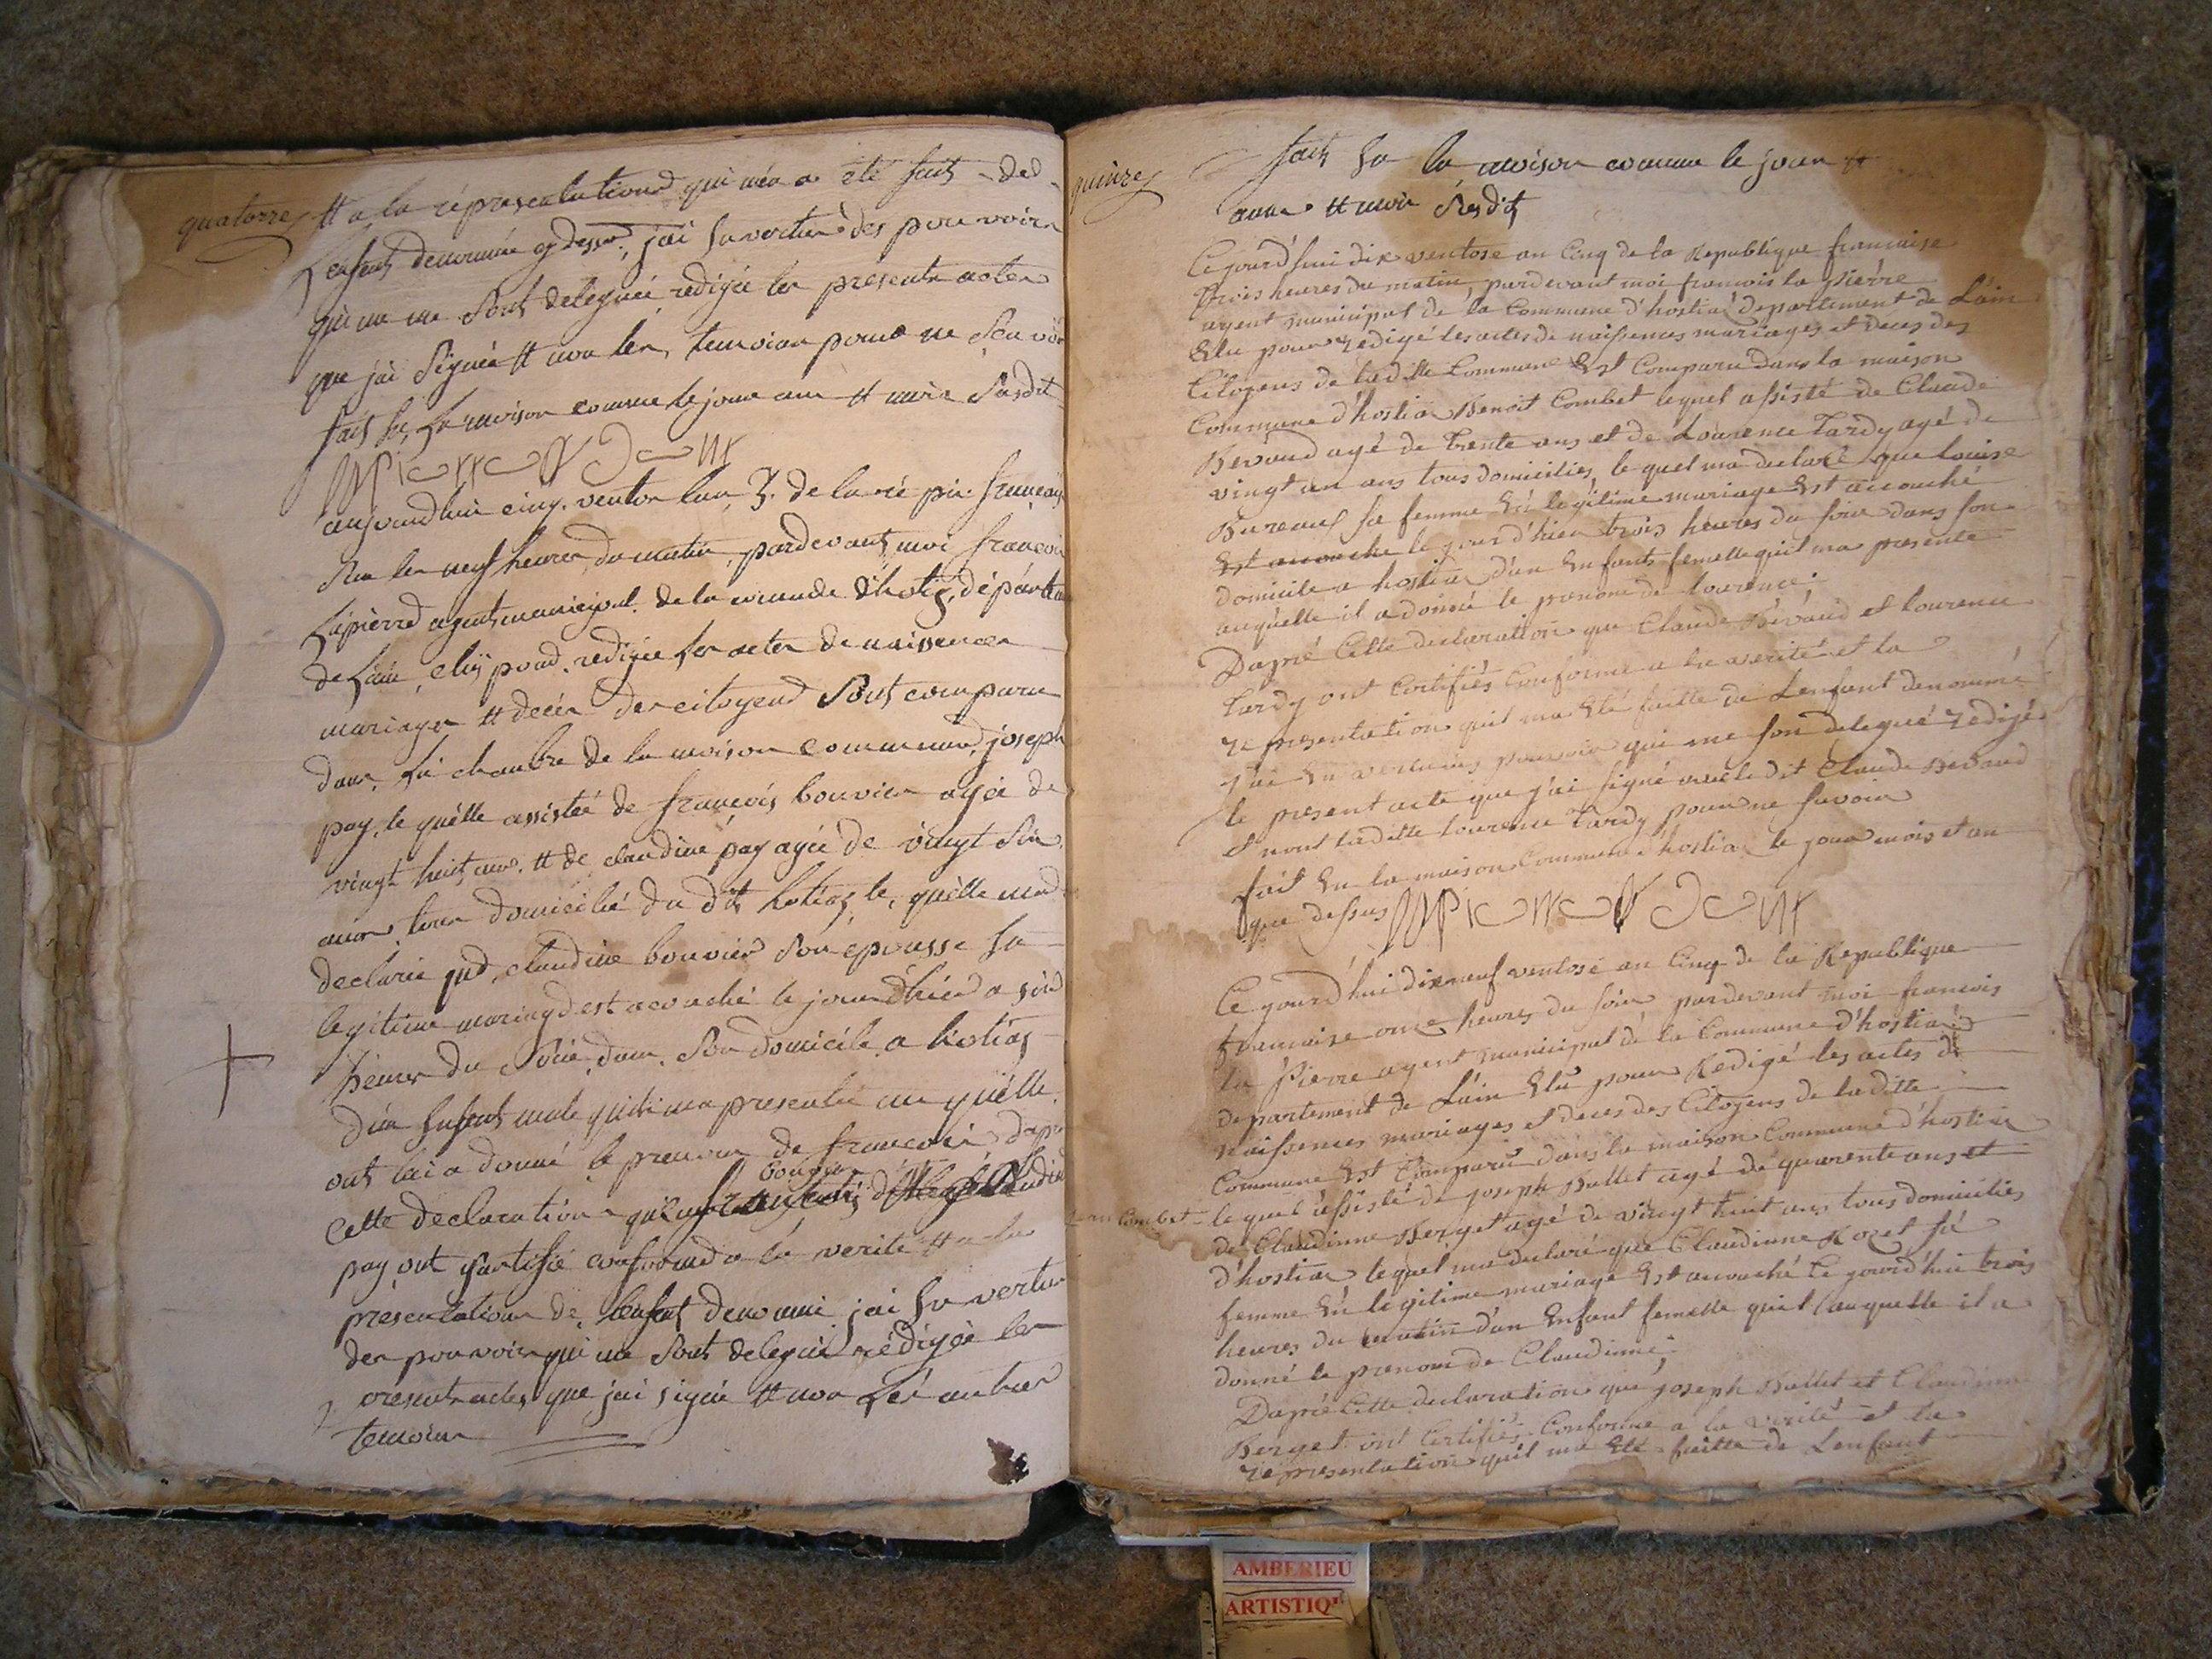 quatorze
et a la représentations qui mèn a été fait ded
Lenfent denommée cydessu, jai en vertue des pouvoirs
qui me me sont deleguée redigée les presente actes
que jai Signée et non les temoins pour ne Savoir
fait en la maison comme le jour ans et mois susdit
aujourdhui cinq ventos lan 5. de la ré pu. françai
Sur les neuf heures du matin pardevant moi françois
Lapierre agent municipal de la comune d'hotias, départ
de Lain, elu pour redigée les actes de naissences
mariages et deces des citoyens sont comparu
dans la chambre de la maison commune joseph
pay, le quelle assistée de françois bouvier agée de
vingt huit ans et de claudine pay agée de vingt six
annes tous domicilié du dit hotias, le quelle ma
declarée que claudine bouvier son épousse en
legitime mariage est acouché le jour dhier a
heures du soire dans son domicile a hotias
dun enfent male quil ma presentée au quelle
ont lui a donné le prenom de francois dapre
cette declaration que
pay ont sartifié conforme a la verité et a la
présentation de lenfent denomme jai en vertue
des pouvoirs qui me sont delegué redigée les
presente actes que jai signée et non les autres
temoins
quinze
fait en la maison comme le jour et
anne et mois susdit
Cejourd'hui dix ventose an Cinq de la Republique francaise
trois heures du matin, pardevant moi francois la pierre
agent municipal de la Commune d'hostia departement de Lain
Elu pour redigé les actes de naissences mariages et deces des
Citoyens de ladite Commune Est Comparu dans la maison
Commune d'hostia Benoit Combet lequel assisté de Claude
Revaud agé de trente ans et de Lourence Tardy agé de
vingt un ans tous domicilies, le quel ma declaré que Louise
Bureaux sa femme En legitime mariage Est acouché
Est acouche le jour d'hier trois heures du soir dans son
domicile a hostia d'un Enfants femelle quil ma presente
auquelle il a donné le prenom de Lourence;
Dapré Cette declaration que Claude Revaud et Lourence
Tardy ont Certifiés Conforme a la verité et la
representation quil ma Eté faitte de Lenfant denommé
J'ai En vertu des pouvoir qui me son delegué redigé
le present acte que j'ai signé avec le dit Claude Revaud
et nont ladite Lourence Tardy pour ne savoir
fait En la maison Commune d'hostia le jour mois et an
que dessus
Ce jourd'hui dixneuf ventose an Cinq de la Republique
francaise onze heures du soir pardevant moi francois
la Pierre agent municipal de la Commune d'hostia
departement de Lain Elu pour Redigé les actes de
Naissences mariages et deces des Citoyens de ladite
Commune Est Comparu dans la maison Commune d'hostia
Combet lequel assisté de joseph Bullet agé de quarente ans et
de Claudinne Berget agé de vingt huit ans tous domicilies
d'hostia lequel ma declaré que Claudinne Rozet sa
femme En legitime mariage Est acouché Ce jourd'hui trois
heures du matin d'un Enfant femelle quil auquelle il a
donné le prenom de Claudinne;
Dapré Cette declaration que joseph Bullet et Claudinne
Berget ont Certifiés Conforme a la verité et la
representation quil ma Eté faitte de Lenfant
AMBERIEU
ARTISTIQ